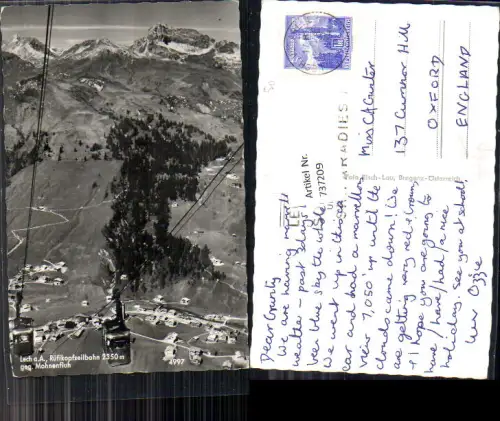 Lech a.A., Rüfikopfseilbahn 2350 m
geg. Mohnenfluh
4997
Artikel Nr.
737209
Foto Risch-Lau, Bregenz-Österreich
PARADIES
Miss C A Gunter
137 Cumnor Hill
OXFORD
ENGLAND
Dear
We are having
weather – past 3 days
blue sky the whole
We went up in this
car and had a marvellous
view 7,050 up until the
clouds came down! We
are getting very red & brown.
I hope you are going to
have/have/had/a nice
holiday. See you at school!
luv Ozzie